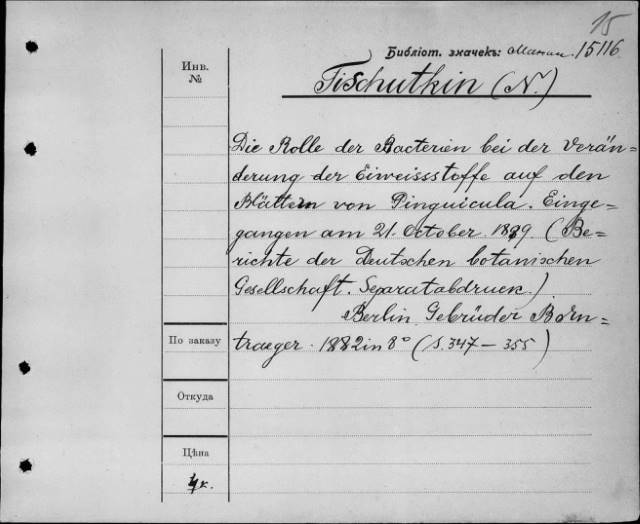 15
Библіот. значекъ: 15116
Инв.
№
Tischutkin (N.)
Die Rolle der Bacterien bei der Verän-
derung der Eiweissstoffe auf den
Blättern von Pinguicula. Einge-
gangen am 21. October 1889. (Be-
richte der Deutschen botanischen
Gesellschaft. Separatabdruck.)
Berlin, Gebrüder Born-
По заказу
traeger. 1882 in 8° (S. 347 - 355)
Откуда
Цѣна